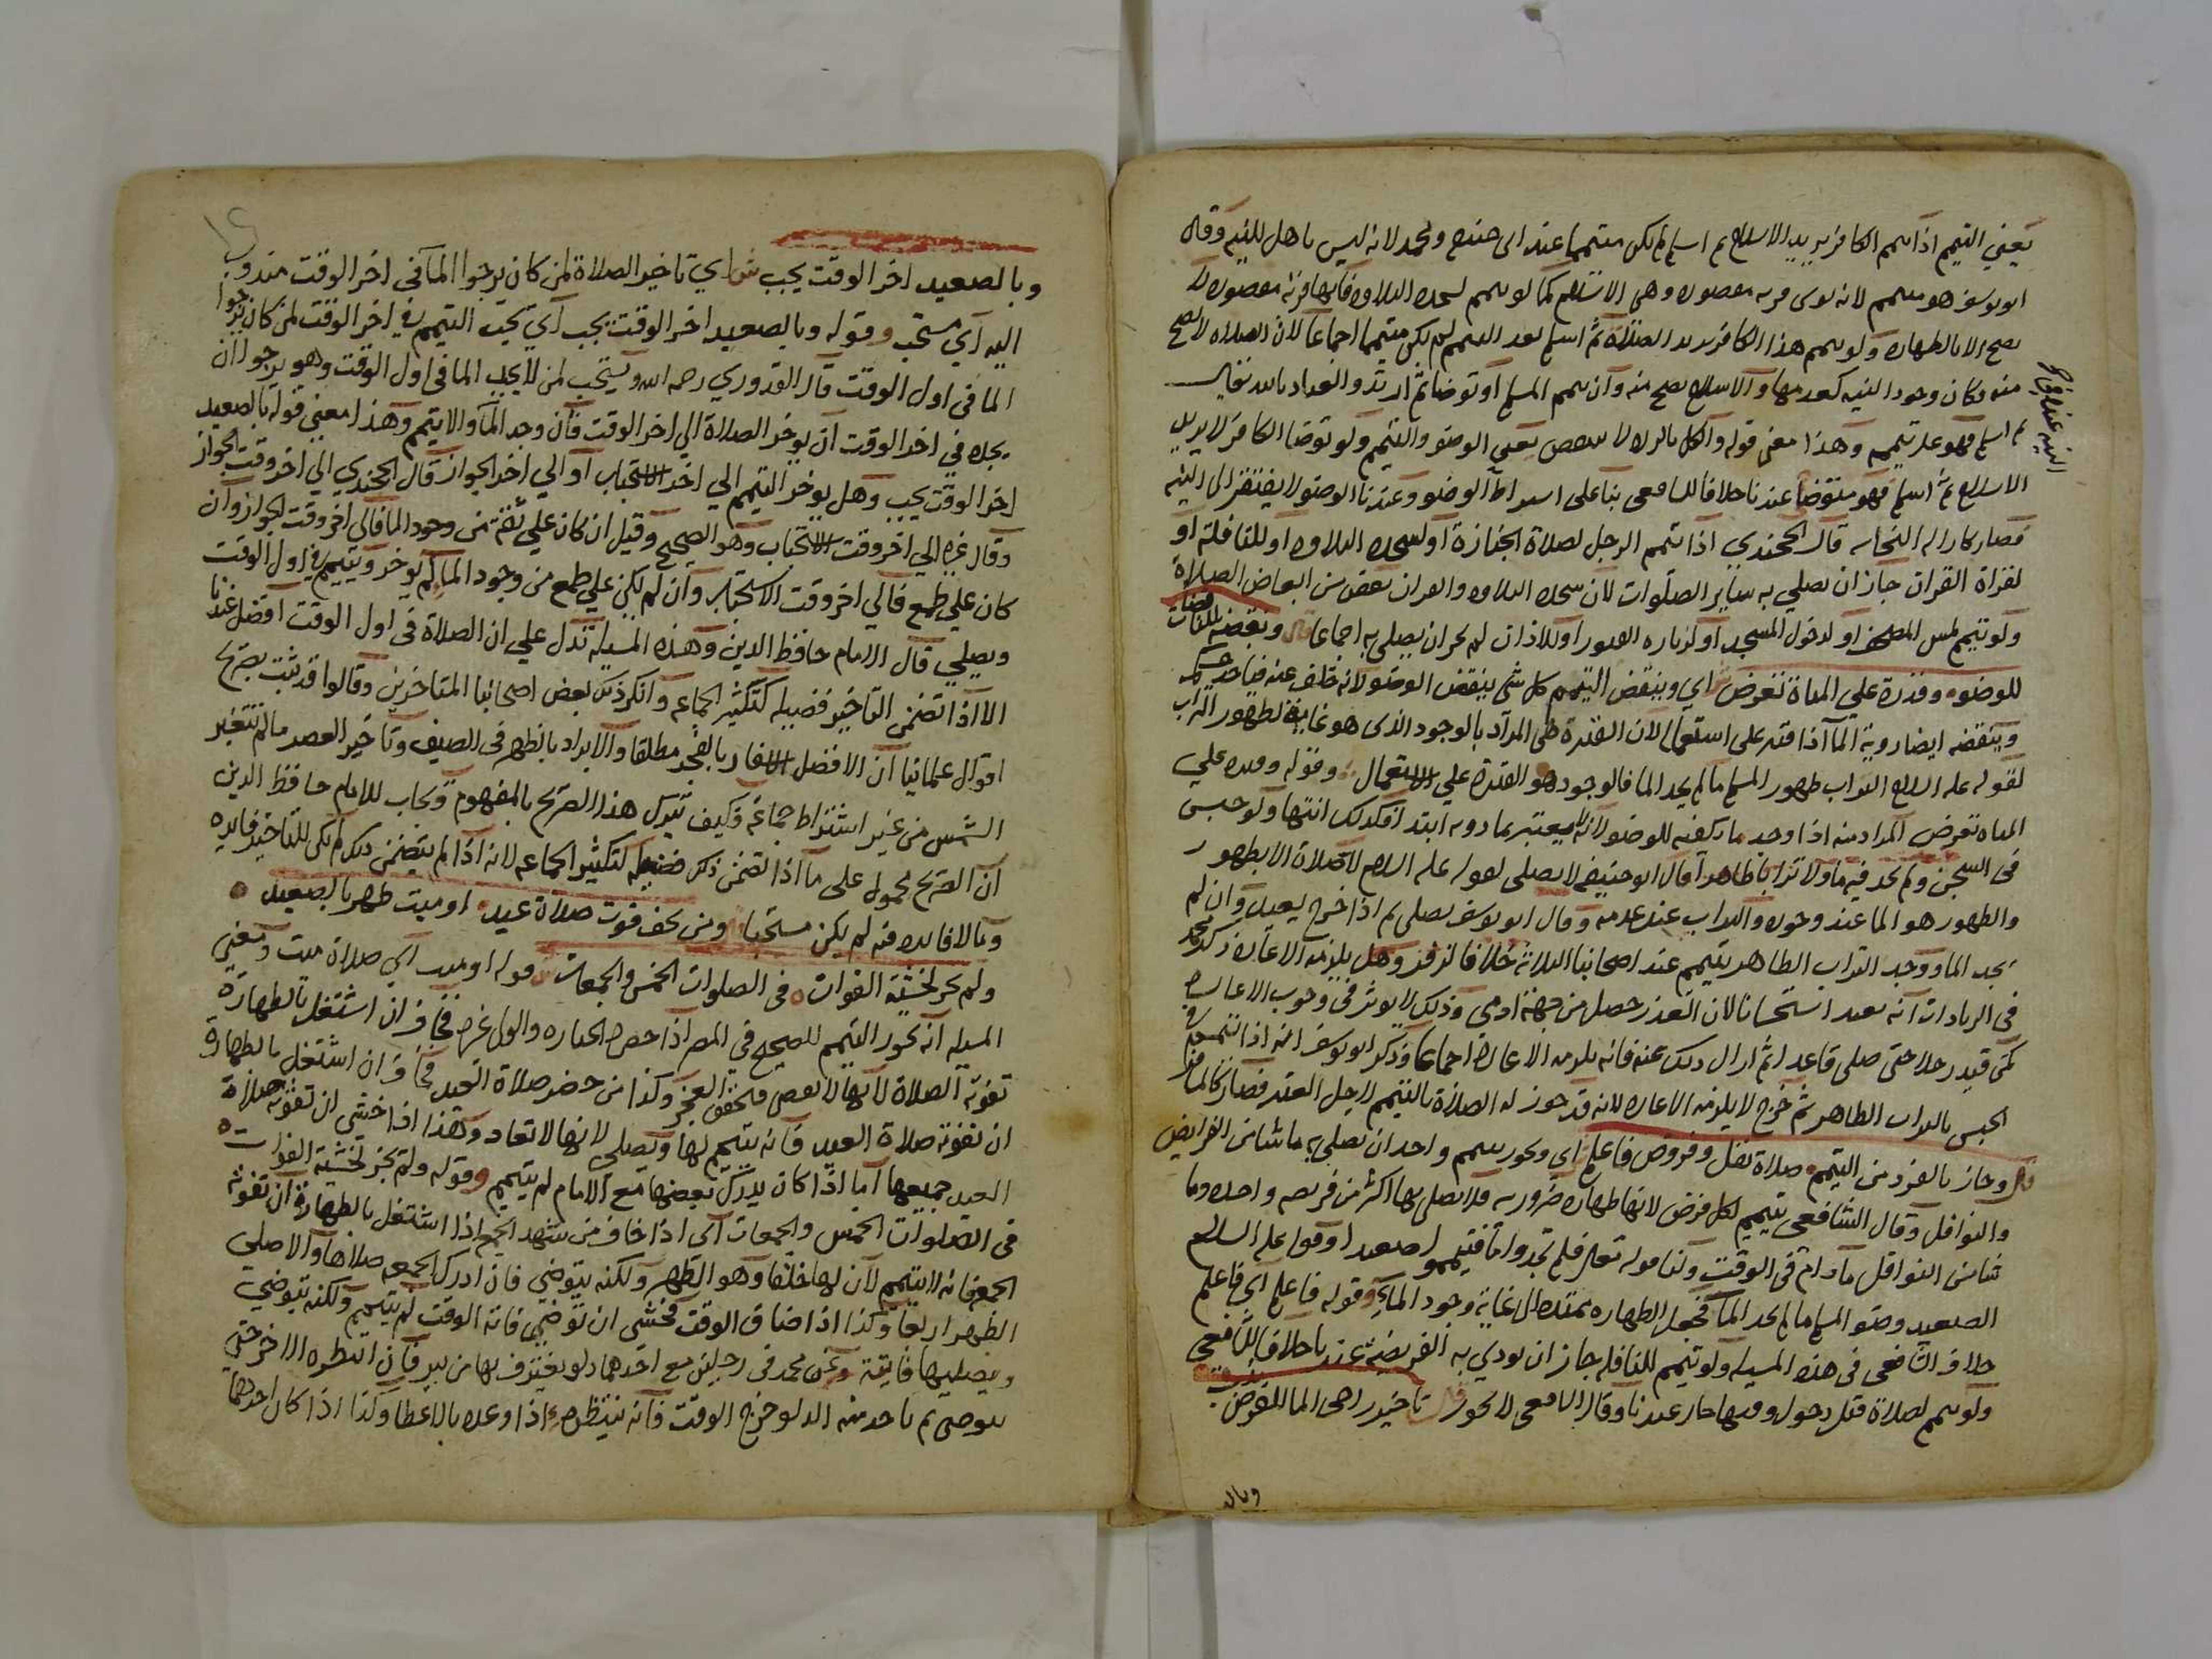 يعني التيمم اذا تيمم الكافر يريد الاسلام ثم اسلم لم يكن متيمما عند ابي حنيفة ومحمد لانه ليس باهل للنية وقال
ابو يوسف هو متيمم لانه نوى قربه مقصوده وهي الاسلام كما لو تيمم لسجدة التلاوه فانها قربه مقصوده لا
تصح الا بالطهاره ولو تيمم هذا الكافر يريد الصلاة ثم اسلم بعد التيمم لم يكن متيمما اجماعا لان الصلاه لا تصح
منه وكان وجود النيه كعدمها والاسلام يصح منه وان تيمم المسلم او توضا ثم ارتد والعياذ بالله تعالى
ثم اسلم فهو على تيممه وهذا معنى قوله والكل بالردة لا ينتقض يعني الوضو والتيمم ولو توضا الكافر لا يريد
الاسلام ثم اسلم فهو متوضأ عندنا خلافا للشافعي بنا على اشتراط الوضو وعندنا الوضو لا يفتقر الى النيه
فصار كازالة النجاسه قال الخجندي اذا تيمم الرجل لصلاة الجنازة او لسجدة التلاوه او للنافلة او
لقراة القران جاز ان يصلي به ساير الصلوات لان سجدة التلاوه والقران بعض من ابعاض الصلاة
ولو تيمم لمس المصحف او لدخول المسجد او لزياره القبور او للاذان لم يجز ان يصلي به اجماعا ونقضه بناقضات
للوضوء وقدرة على المياة تفرض ش اي وينقض التيمم كل شي ينقض الوضو لانه خلف عنه فياخذ حكمه
وينقضه ايضا روية المآ اذا قدر على استعماله لان القدرة هي المراد بالوجود الذي هو غاية لطهور التراب
لقوله عليه السلام التراب طهور المسلم ما لم يجد الما فالوجود هو القدرة على الاستعمال وقوله وقدره على
المياه تفرض المراد منه اذا وجد ما يكفيه للوضو لانه لا معتبر بما دونه ابتدا فكذلك انتها ولو حبس
في السجن ولم يجد فيه ما ولا ترابا طاهرا قال ابو حنيفه لا يصلي لقوله عليه السلام لا صلاة الا بطهور
والطهور هو الما عند وجوده والتراب عند عدمه وقال ابو يوسف يصلي ثم اذا خرج يعيد وان لم
يجد الما ووجد التراب الطاهر تيمم عند اصحابنا الثلاثة خلافا لزفر وهل يلزمه الاعادة ذكر محمد
في الزيادات انه يعيد استحسانا لان العذر حصل من جهة ادمي وذلك لا يوثر في وجوب الاعاده
كمن قيد رجلا حتى صلى قاعدا ثم ازال ذلك عنه فانه يلزمه الاعادة اجماعا وذكر ابو يوسف انه اذا تيمم في
الحبس بالتراب الطاهر ثم خرج لا يلزمه الاعاده لانه قد جوز له الصلاة بالتيمم لاجل العذر فصار كالمسافر
وجاز بالفرد من التيمم صلاة نفل وفروض فاعلم ش اي ويجوز بتيمم واحد ان يصلي به ما شا من الفرايض
والنوافل وقال الشافعي يتيمم لكل فرض لانها طهاره ضروريه فلا يصلي بها اكثر من فريضه واحده وما
شا من النوافل ما دام في الوقت ولنا قوله تعالى فلم تجدوا ما فتيمموا صعيدا وقوله عليه السلام
الصعيد وضو المسلم ما لم يجد المآ فجعل الطهاره ممتدة الى غاية وجود الماء وقوله فاعلم اي فاعلم
خلاف الشافعي في هذه المسيله ولو تيمم للنافله جاز ان يودي به الفريضة عندنا خلافا للشافعي
ولو تيمم لصلاة قبل دخول وقتها جاز عندنا وقال الشافعي لا يجوز تاخير راجي الما للفروض
وبال
وبالصعيد اخر الوقت يجب ش اي تاخير الصلاة لمن كان يرجوا المآ في اخر الوقت مندوب
اليه اي مستحب وقوله وبالصعيد اخر الوقت يجب اي يجب التيمم في اخر الوقت لمن كان يرجوا
الما في اول الوقت قال القدوري رحمه الله ويستحب لمن لا يجد الما في اول الوقت وهو يرجو ان
يجده في اخر الوقت ان يوخر الصلاة الي اخر الوقت فان وجد المآ والا تيمم وهذا معني قوله بالصعيد
اخر الوقت يجب وهل يوخر التيمم الي اخر الاستحباب او الي اخر الجواز قال الخجندي الي اخر وقت الجواز
وقال غيره الي اخر وقت الاستحباب وهو الصحيح وقيل ان كان علي ثقة من وجود الما فالي اخر وقت الجواز وان
كان علي طمع فالي اخر وقت الاستحباب وان لم يكن علي طمع من وجود الما لم يوخر ويتيمم في اول الوقت
ويصلي قال الامام حافظ الدين وهذه المسيلة تدل علي ان الصلاة في اول الوقت افضل عندنا
الا اذا تضمن التاخير فضيله كتكثير الجماعه وانكر ذلك بعض اصحابنا المتاخرين وقالوا قد ثبت بصريح
اقوال علمائنا ان الافضل الاسفار بالفجر مطلقا والابراد بالظهر في الصيف وتاخير العصر ما لم تتغير
الشمس من غير اشتراط جماعة فكيف يترك هذا الصريح بالمفهوم ويجاب للامام حافظ الدين
ان الصريح محمول على ما اذا تضمن ذلك فضيله كتكثير الجماعه لانه اذا لم يتضمن ذلك لم يكن للتاخير فايده
وما لا فايده فيه لم يكن مستحبا ومن يخف فوت صلاة عيد او ميت طهر بالصعيد
ولم يجز لخشية الفوات في الصلوات الخمس والجمعات قوله او ميت اي صلاة ميت ومعني
المسيله انه يجوز التيمم للصحيح في المصر اذا حضر الجنازه والولي غيره فخاف ان اشتغل بالطهارة
تفوته الصلاة لانها لا تقضى فتحقق العجز وكذا من حضر صلاة العيد فخاف ان اشتغل بالطهارة
ان تفوته صلاة العيد فانه يتيمم لها ويصلي لانها لا تعاد وهذا اذا خشي ان تفوته صلاة
العيد جميعها اما اذا كان يدرك بعضها مع الامام لم يتيمم وقوله ولم يجز لخشية الفوات
في الصلوات الخمس والجمعات اي اذا خاف من شهد الجمعة اذا اشتغل بالطهارة ان تفوته
الجمعة فانه لا يتيمم لان لها خلفا وهو الظهر ولكنه يتوضي فان ادرك الجمعه صلاها والا صلي
الظهر اربعا وكذا اذا ضاق الوقت فخشي ان توضي فاته الوقت لم يتيمم ولكنه يتوضي
ويصليها فايتة وعن محمد في رجلين مع احدهما دلو يغترف بها من بير فان انتظره الاخر حتى
يتوضي ثم ياخذ منه الدلو خرج الوقت فانه ينتظره اذا وعده بالاعطا وكذا اذا كان احدهما